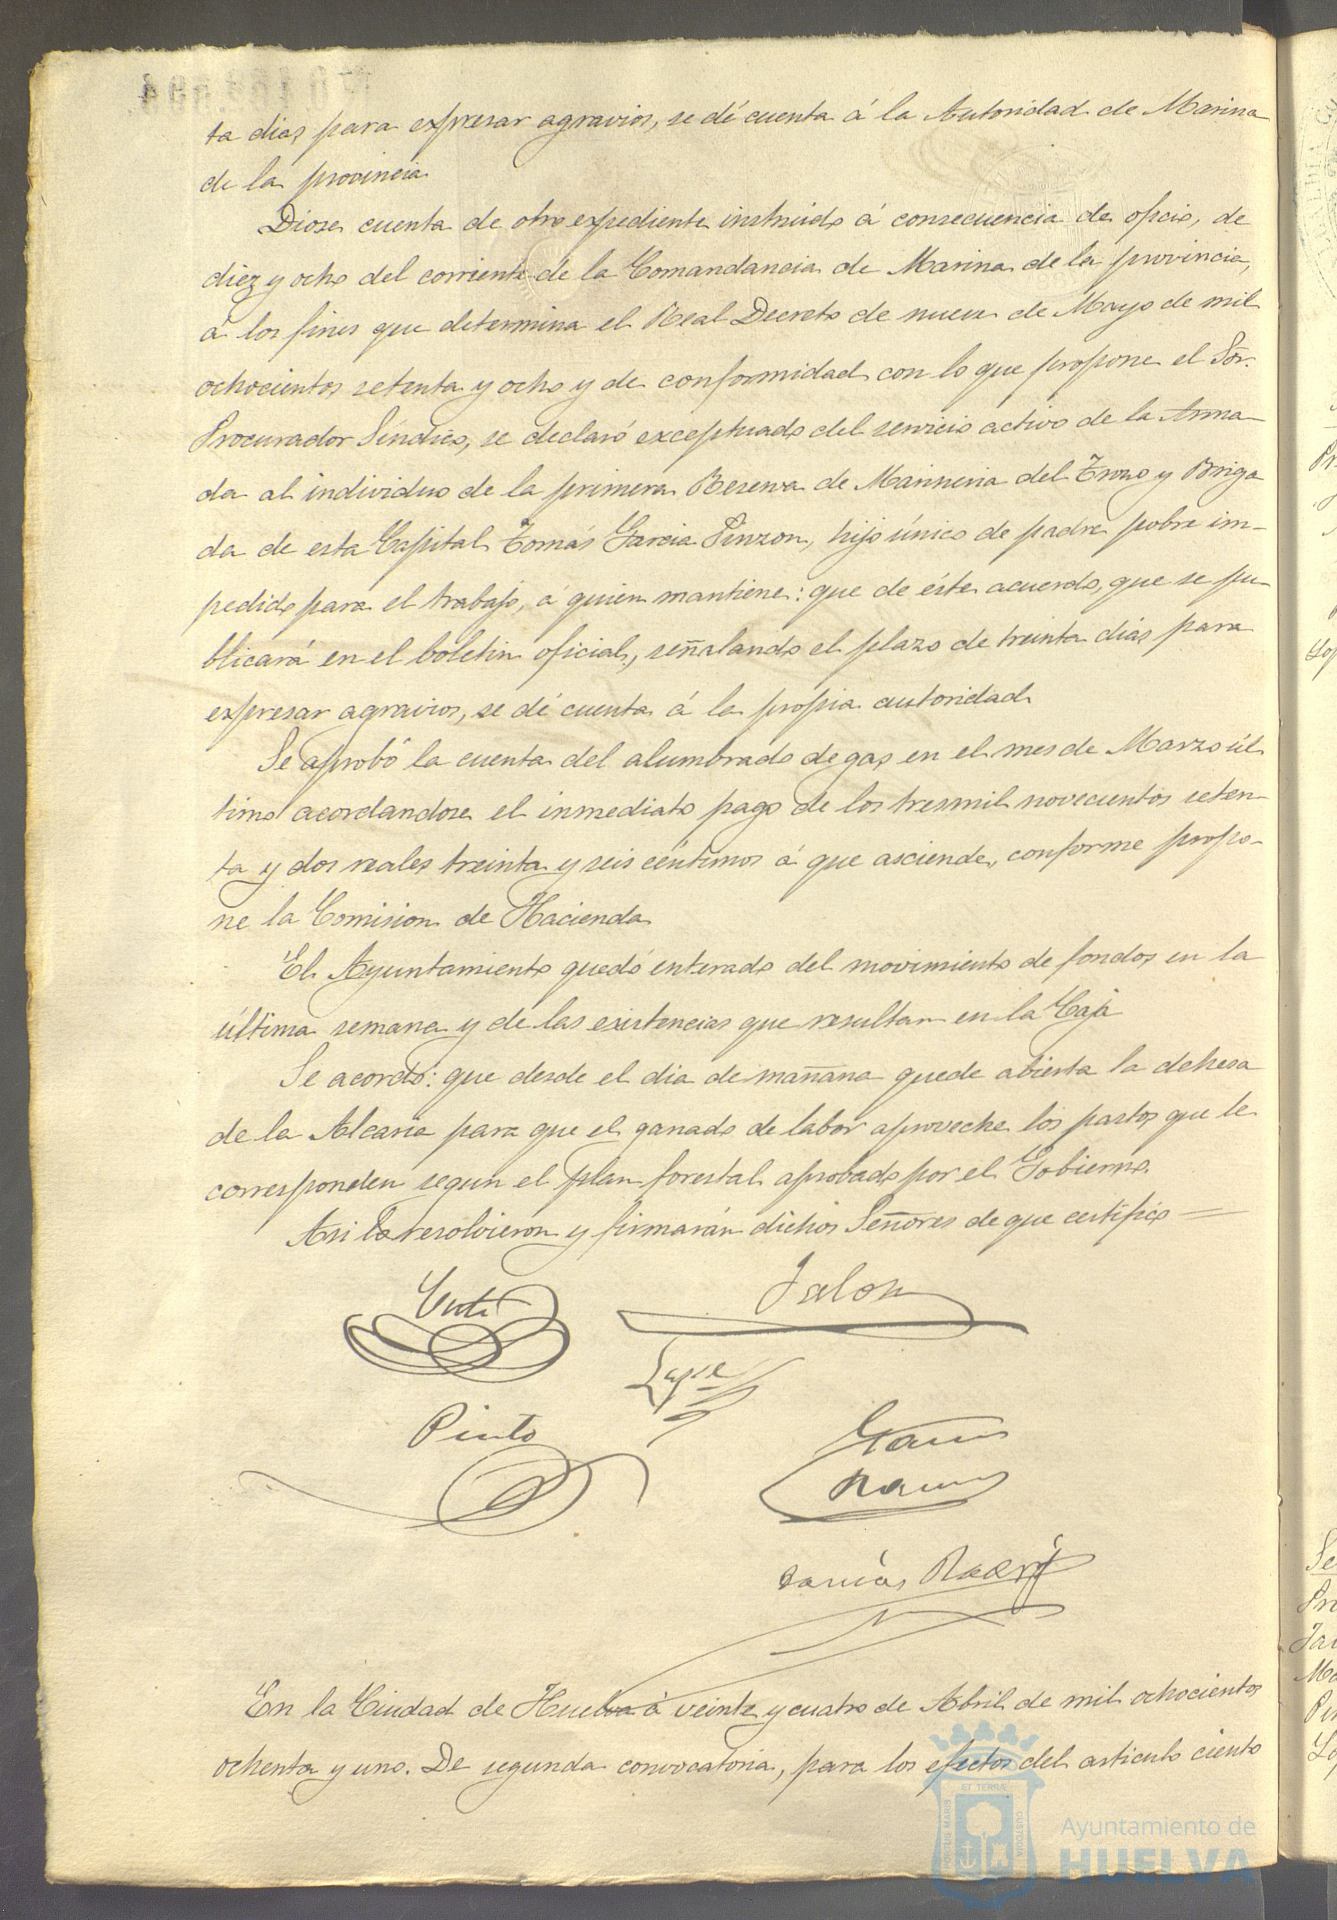 ta dias para expresar agravios, se dé cuenta á la Autoridad de Marina
de la provincia
Diose cuenta de otro expediente instruido á consecuencia de oficio, de
diez y ocho del corriente de la Comandancia de Marina de la provincia,
á los fines que determina el Real Decreto de nueve de Mayo de mil
ochocientos setenta y ocho y de conformidad con lo que propone el Sor.
Procurador Síndico, se declaró exceptuado del servicio activo de la Arma-
da al individuo de la primera Reserva de Marineria del Trozo y Briga
da de esta Capital Tomás Garcia Pinzon, hijo único de padre pobre im-
pedido para el trabajo, á quien mantiene: que de éste acuerdo, que se pu-
blicará en el boletin oficial, señalando el plazo de treinta dias para
expresar agravios, se dé cuenta á la propia autoridad
Se aprobó la cuenta del alumbrado de gas en el mes de Marzo úl
timo acordandose el inmediato pago de los tresmil novecientos seten-
ta y dos reales treinta y seis céntimos á que asciende, conforme propo-
ne la Comision de Hacienda
El Ayuntamiento quedó enterado del movimiento de fondos en la
última semana y de las existencias que resultan en la Caja
Se acordó: que desde el dia de mañana quede abierta la dehesa
de la Alcaria para que el ganado de labor aproveche los pastos que le
corresponden segun el plan forestal aprobado por el Gobierno.
Asi lo resolvieron y firmarán dichos Señores de que certifico =
Jalon
Pinto
En la Ciudad de Huelva á veinte y cuatro de Abril de mil ochocientos
ochenta y uno. De segunda convocatoria, para los efectos del articulo ciento
PORTUS MARIS ET TERRAE CUSTODIA
Ayuntamiento de
HUELVA